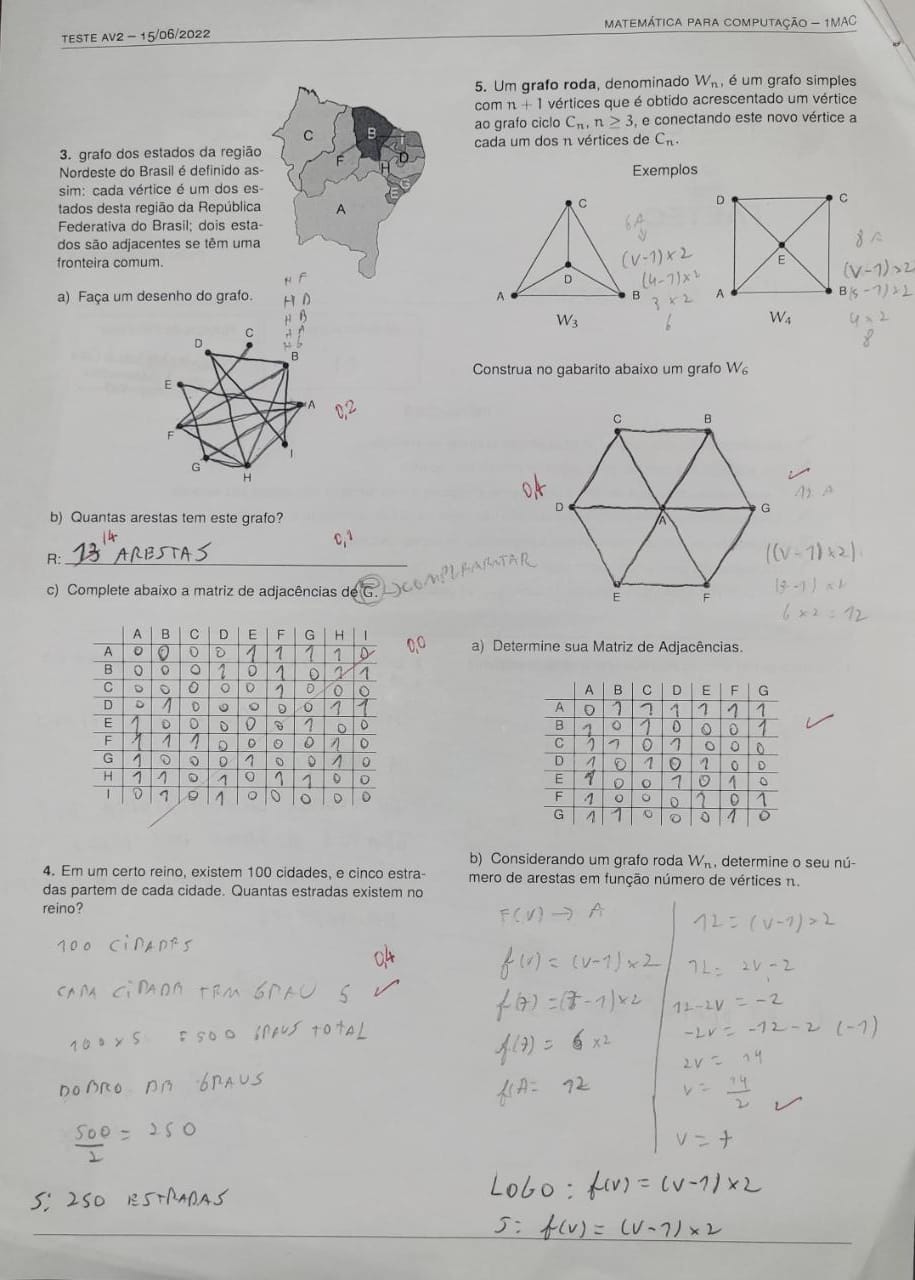 TESTE AV2 – 15/06/2022
MATEMÁTICA PARA COMPUTAÇÃO – 1MAC
3. grafo dos estados da região
Nordeste do Brasil é definido as-
sim: cada vértice é um dos es-
tados desta região da República
Federativa do Brasil; dois esta-
dos são adjacentes se têm uma
fronteira comum.
C B I F H D G E A
a) Faça um desenho do grafo.
H F
H D
H B
H A
H G
D C B E A F G H I
0,2
b) Quantas arestas tem este grafo?
14
0,1
R: 13 ARESTAS
c) Complete abaixo a matriz de adjacências de G.
COMPLEMENTAR
0,0
A B C D E F G H I
A 0 0 0 0 1 1 1 1 0
B 0 0 0 1 0 1 0 1 1
C 0 0 0 0 0 1 0 0 0
D 0 1 0 0 0 0 0 1 1
E 1 0 0 0 0 0 1 0 0
F 1 1 1 0 0 0 0 1 0
G 1 0 0 0 1 0 0 1 0
H 1 1 0 1 0 1 1 0 0
I 0 1 0 1 0 0 0 0 0
4. Em um certo reino, existem 100 cidades, e cinco estra-
das partem de cada cidade. Quantas estradas existem no
reino?
100 CIDADES
0,4
CADA CIDADE TEM GRAU 5
100 x 5 = 500 GRAUS TOTAL
DOBRO DE GRAUS
500/2 = 250
S: 250 ESTRADAS
5. Um grafo roda, denominado Wn, é um grafo simples
com n + 1 vértices que é obtido acrescentado um vértice
ao grafo ciclo Cn, n ≥ 3, e conectando este novo vértice a
cada um dos n vértices de Cn.
Exemplos
C D A B
W3
6A
(V-1)x2
(4-1)x2
3 x 2
6
D C E A B
W4
8 A
(V-1)x2
(5-1)x2
4 x 2
8
Construa no gabarito abaixo um grafo W6
C B D A G E F
0,4
12 A
((V-1)x2)
6 x 2 = 12
a) Determine sua Matriz de Adjacências.
A B C D E F G
A 0 1 1 1 1 1 1
B 1 0 1 0 0 0 1
C 1 1 0 1 0 0 0
D 1 0 1 0 1 0 0
E 1 0 0 1 0 1 0
F 1 0 0 0 1 0 1
G 1 1 0 0 0 1 0
b) Considerando um grafo roda Wn, determine o seu nú-
mero de arestas em função número de vértices n.
F(V) → A
f(v) = (v-1)x2
f(7) = (7-1)x2
f(7) = 6 x2
f(A= 12
12 = (v-1)x2
12 = 2v - 2
12-2v = -2
-2v = -12-2 (-1)
2v = 14
v = 14/2
v = 7
LOGO : f(v) = (v-1)x2
S: f(v) = (v-1)x2